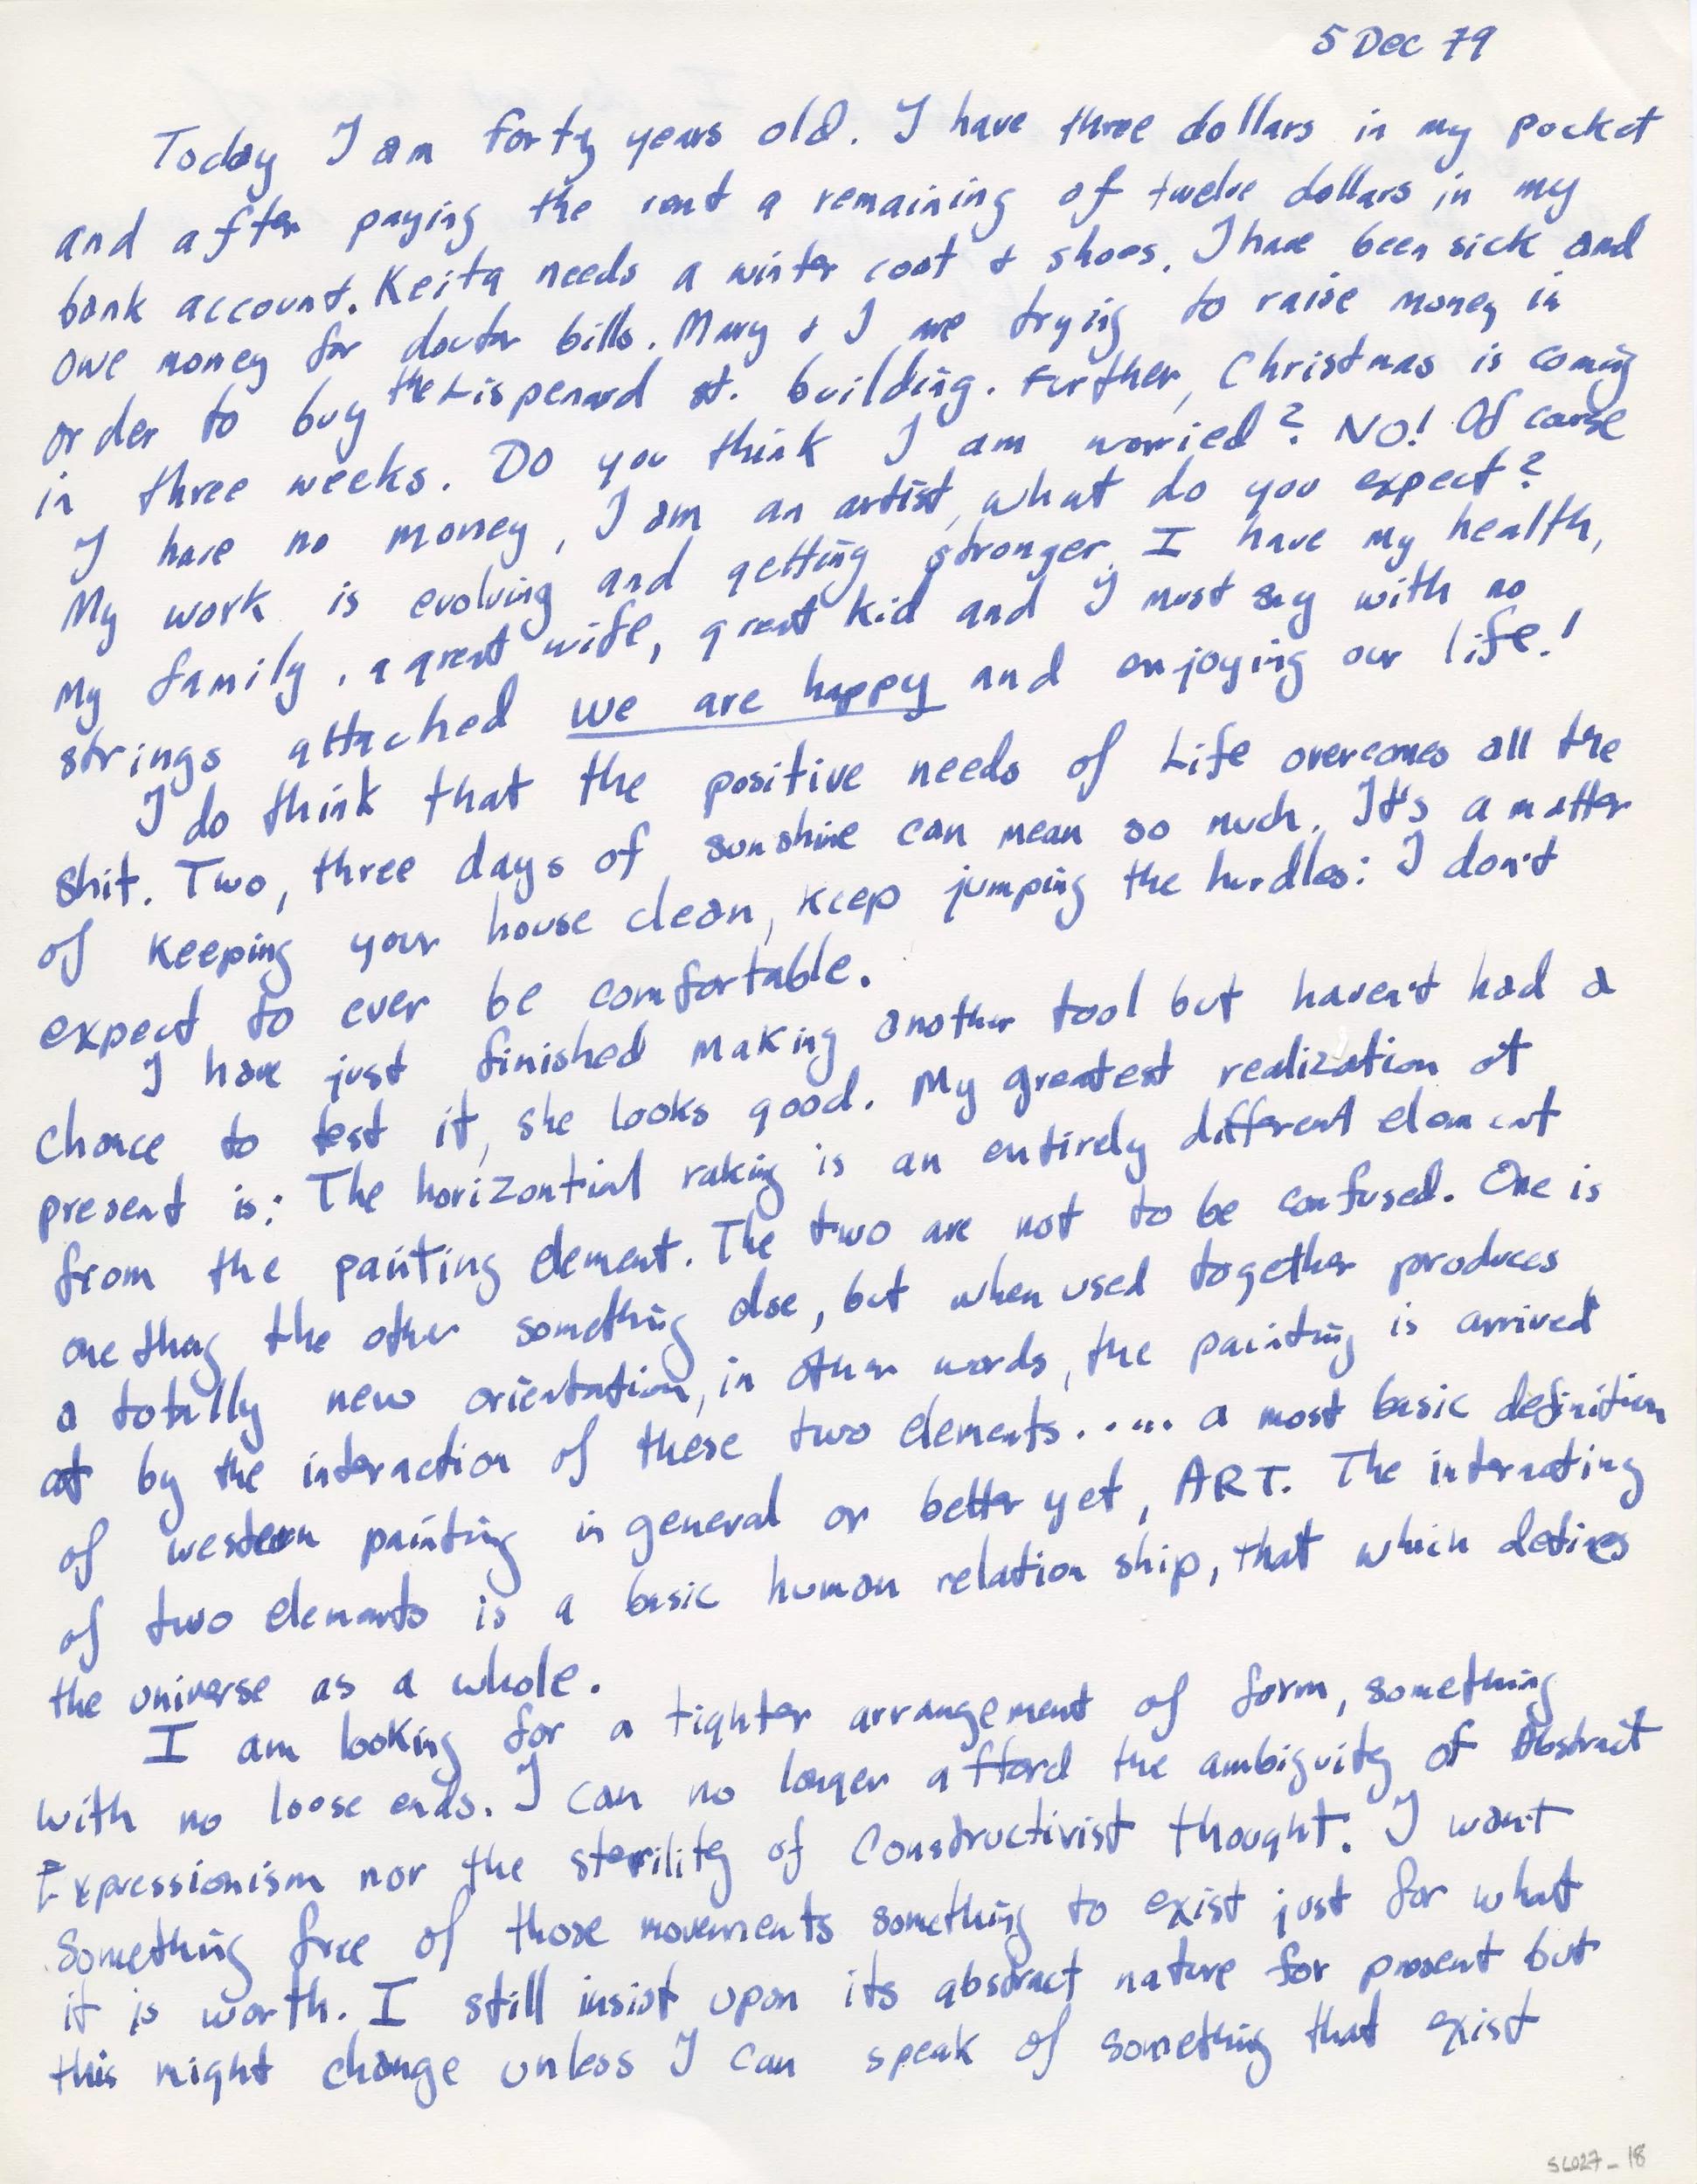 5 Dec 79
Today I am forty years old. I have three dollars in my pocket
and after paying the rent a remaining of twelve dollars in my
bank account. Keita needs a winter coat & shoes. I have been sick and
owe money for doctor bills. Mary & I are trying to raise money in
order to buy the Lispenard st. building. Further, Christmas is coming
in three weeks. Do you think I am worried? NO! Of carse
I have no money, I am an artist, what do you expect?
My work is evolving and getting stronger. I have my health,
my family, a great wife, great kid and I must say with no
strings attached we are happy and enjoying our life!
I do think that the positive needs of Life overcomes all the
shit. Two, three days of sunshine can mean so much. It's a matter
of keeping your house clean, keep jumping the hurdles: I don't
expect to ever be comfortable.
I have just finished making another tool but haven't had a
chance to test it, she looks good. My greatest realization at
present is: The horizontial raking is an entirely different element
from the painting element. The two are not to be confused. One is
one thing the other something else, but when used together produces
a totally new orientation, in other words, the painting is arrived
at by the interaction of these two elements..... a most basic definition
of western painting in general or better yet, ART. The interating
of two elements is a basic human relation ship, that which defines
the universe as a whole.
I am looking for a tighter arrangement of form, something
with no loose ends. I can no longer afford the ambiguity of Abstract
Expressionism nor the sterility of Constructivist thought. I want
something free of those movements something to exist just for what
it is worth. I still insist upon its abstract nature for present but
this might change unless I can speak of something that exist
SL027_18